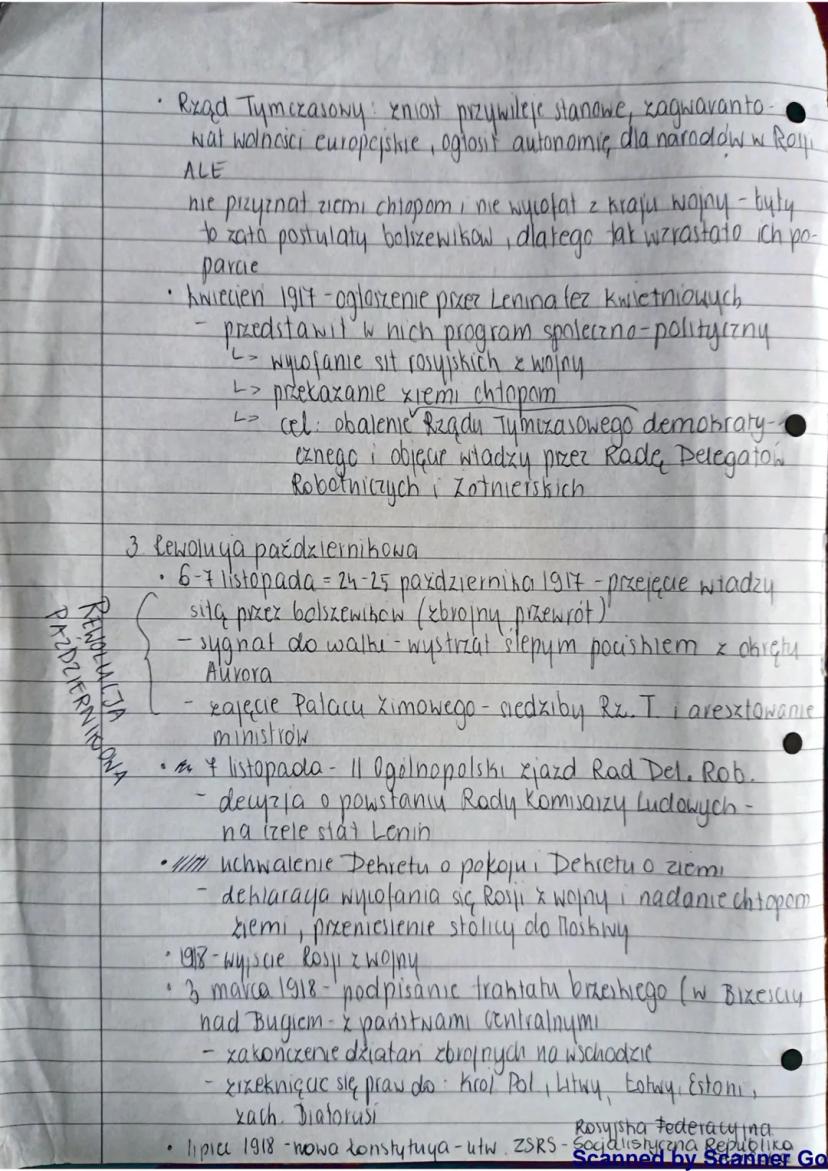 • Rząd Tymczasowy: zniósł przywileje stanowe, zagwaranto-
wał wolności europejskie, ogłosił autonomię dla narodów w Rosji
ALE
nie przyznał ziemi chłopom i nie wycofał z kraju wojny - były
to zaś postulaty bolszewików, dlatego tak wzrastało ich po-
parcie
• kwiecień 1917 - ogłoszenie przez Lenina tez kwietniowych
- przedstawił w nich program społeczno-polityczny
↳ wycofanie sił rosyjskich z wojny
↳ przekazanie ziemi chłopom
↳ cel: obalenie Rządu Tymczasowego demokraty-
cznego i objęcie władzy przez Radę Delegatów
Robotniczych i Żołnierskich
3 Rewolucja październikowa
• 6-7 listopada = 24-25 października 1917 - przejęcie władzy
siłą przez bolszewików (zbrojny przewrót)
- sygnał do walki - wystrzał ślepym pociskiem z okrętu
Aurora
- zajęcie Pałacu Zimowego - siedziby Rz. T. i aresztowanie
ministrów
REWOLUCJA
PAŹDZIERNIKOWA
• 7 listopada - II Ogólnopolski zjazd Rad Del. Rob.
- decyzja o powstaniu Rady Komisarzy Ludowych -
na czele stał Lenin
• uchwalenie Dekretu o pokoju i Dekretu o ziemi
- deklaracja wycofania się Rosji z wojny i nadanie chłopom
ziemi, przeniesienie stolicy do Moskwy
• 1918 - wyjście Rosji z wojny
• 3 marca 1918 - podpisanie traktatu brzeskiego (w Brześciu
nad Bugiem - z państwami centralnymi
- zakończenie działań zbrojnych na wschodzie
- zrzeknięcie się praw do: Król Pol, Litwy, Łotwy, Estoni,
zach. Białorusi
• lipiec 1918 - nowa konstytucja - utw. ZSRS - Rosyjska Federacyjna
Socjalistyczna Republika
Scanned by Scanner Go